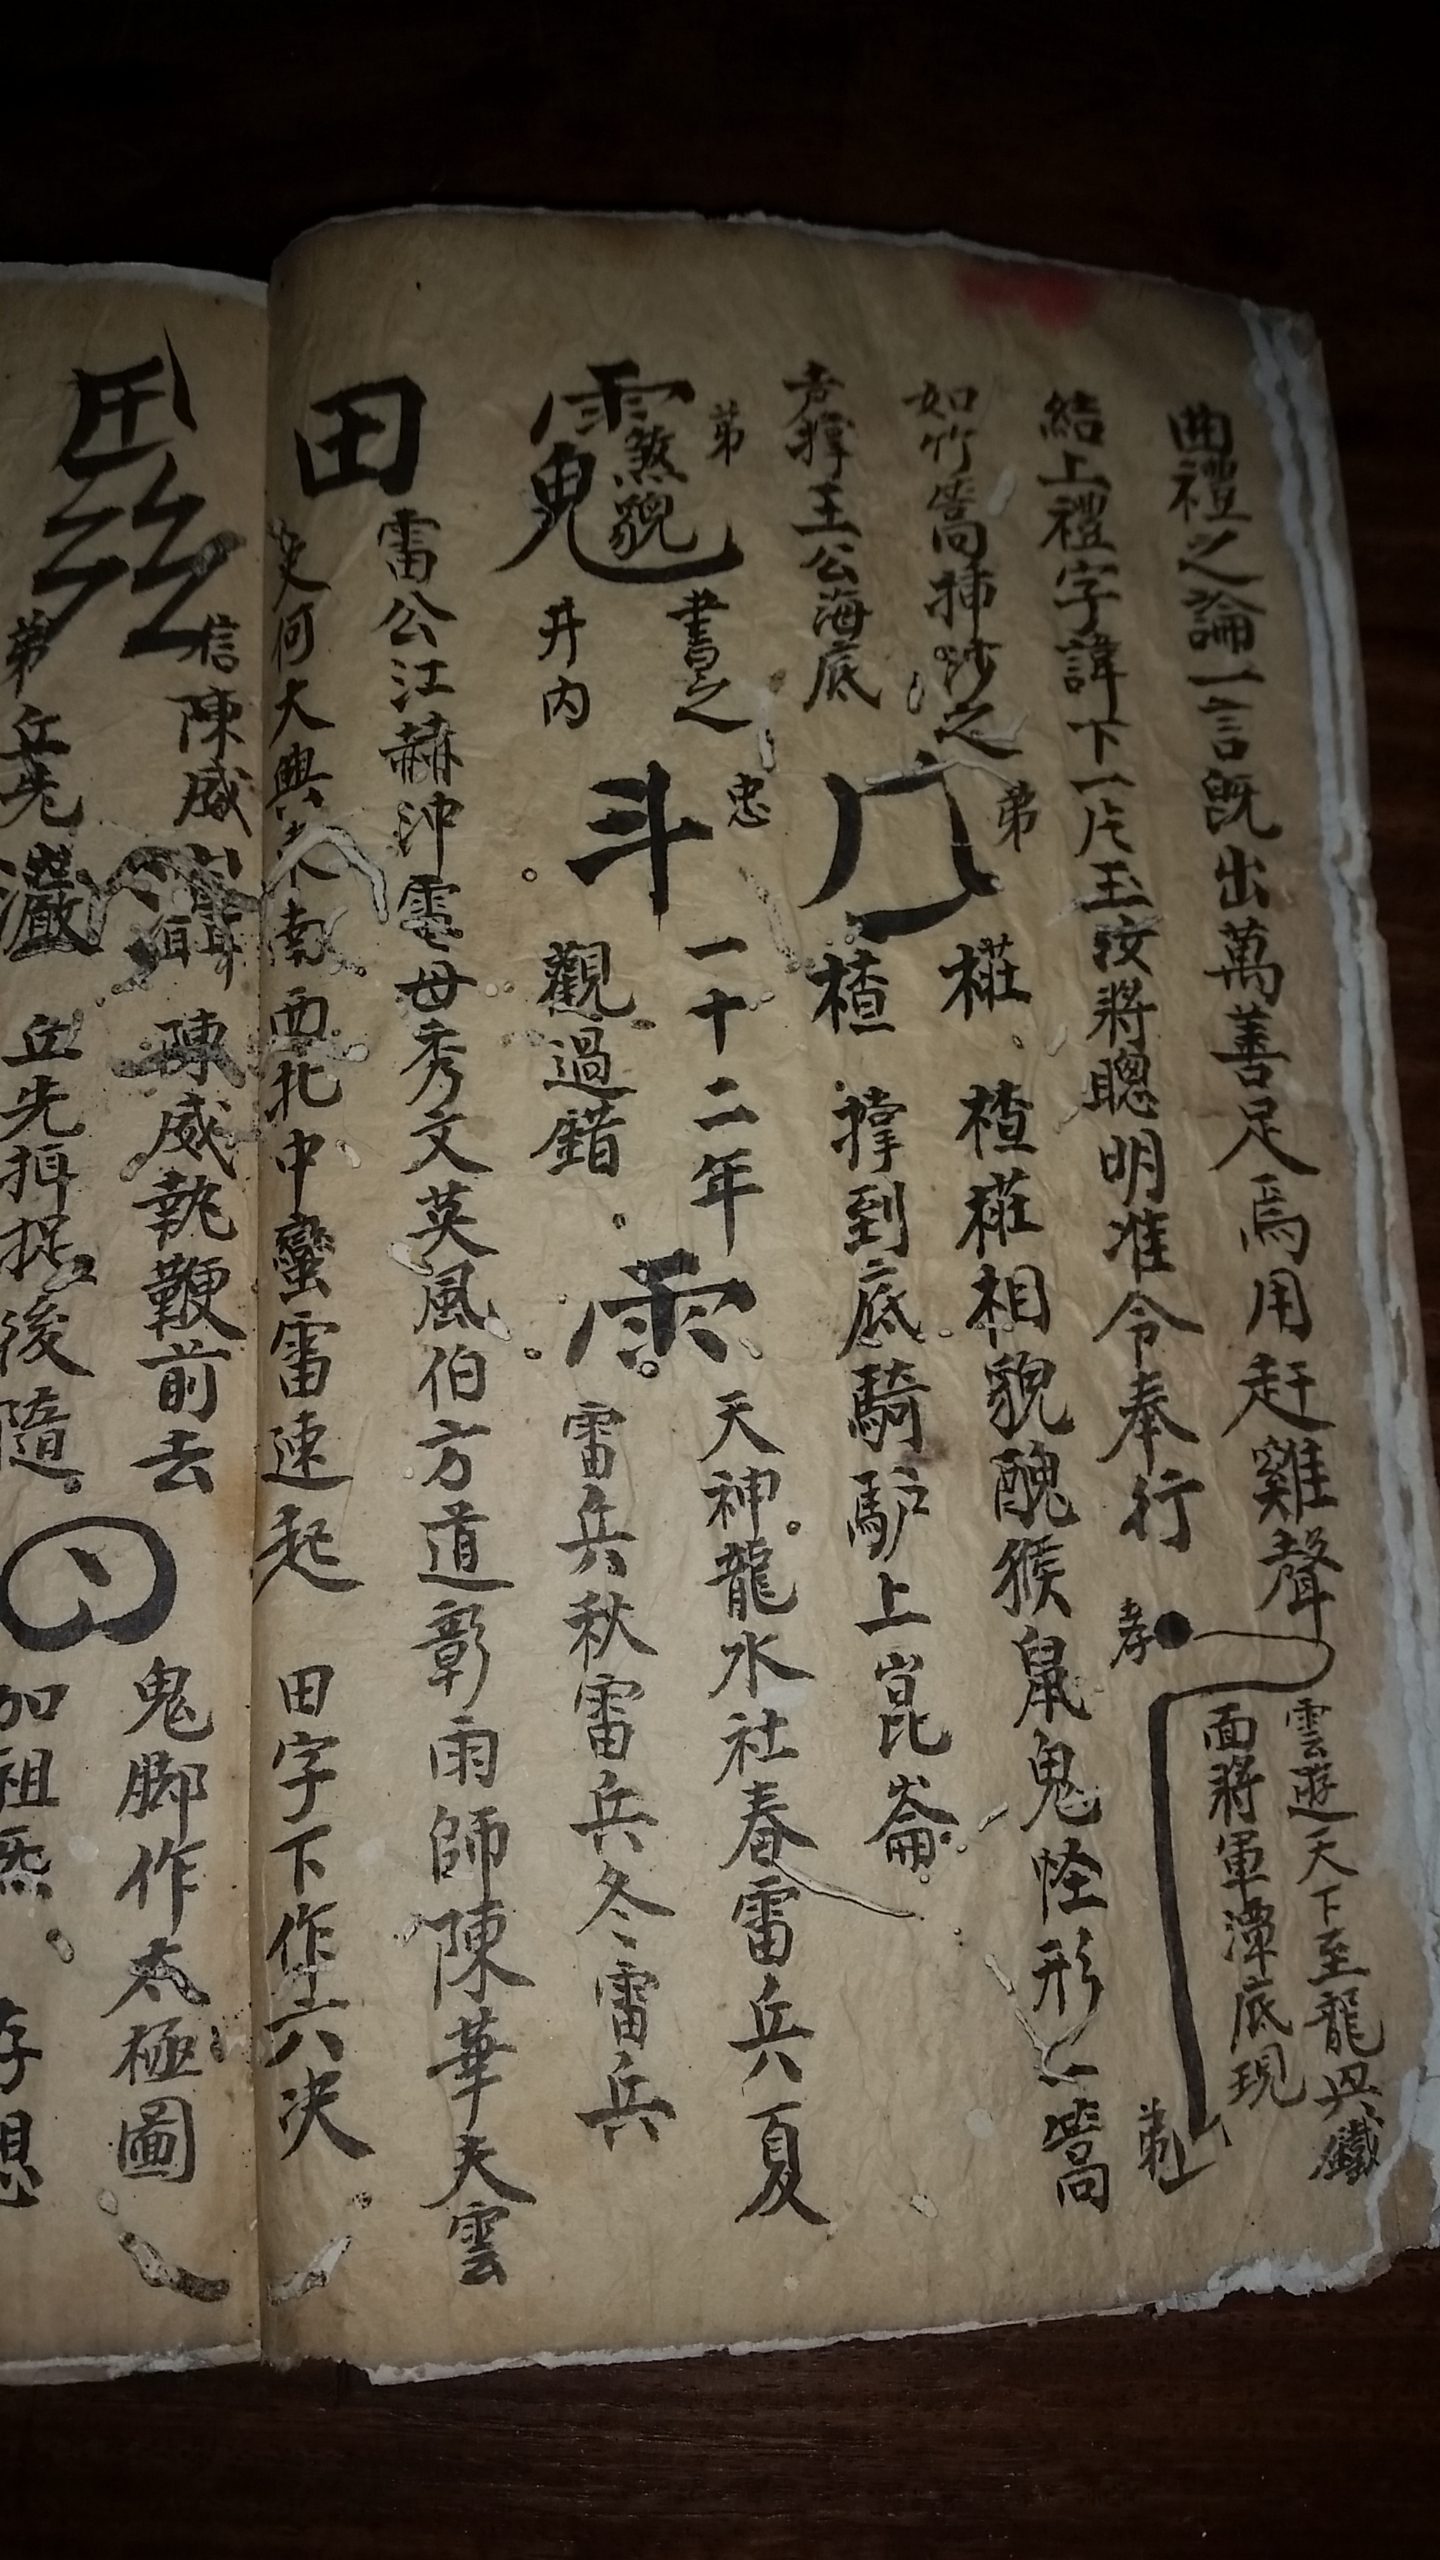 曲禮之論一言既出萬善足焉用赶雞聲
雲遊天下至龍與鐵
面將軍潭底現
結上禮字諱下一片玉汝將聰明准令奉行
孝
弟
如竹篙插沙之
弟
楂 相貌醜猴鼠鬼怪形一篙
撐王公海底
楂 撐到底騎馿上崑崙
弟
書之
井内
忠
斗
一十二年
觀過錯
雨
天神龍水社春雷兵夏
雷兵秋雷兵冬雷兵
雷公江赫冲電母秀文英風伯方道彰雨師陳華夫雲
田
何大興東南西北中蠻雷速起 田字下作六決
信陳威 陳威執鞭前去 鬼脚作太極圖
弟 丘先 丘先 捉後隨 加祖炁 存想